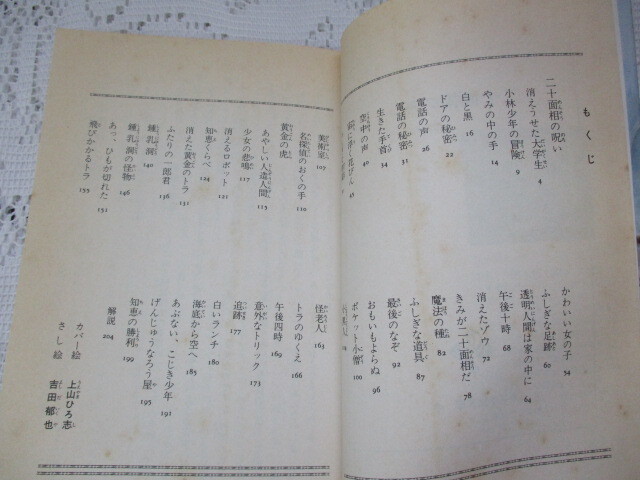 もくじ
二十面相の呪い
消えうせた大学生 4
小林少年の冒険 9
やみの中の手 14
白と黒 16
ドアの秘密 22
電話の声 26
電話の秘密 31
生きた手首 34
空中の声 40
45
かわいい女の子 54
ふしぎな足跡 60
透明人間は家の中に 64
午後十時 68
消えたゾウ 72
きみが二十面相だ 78
魔法の種 82
ふしぎな道具 87
最後のなぞ 92
おもいもよらぬ 96
ポケット小僧 100
美術室 107
名探偵のおくの手 110
黄金の虎
あやしい人造人間 113
少女の悲鳴 117
消えるロボット 121
知恵くらべ 124
消えた黄金のトラ 131
ふたりの一郎君 136
鍾乳洞 140
鍾乳洞の怪物 146
あっ、ひもが切れた 151
飛びかかるトラ 155
怪老人 163
トラのゆくえ 166
午後四時 169
意外なトリック 173
追跡 177
白いランチ 180
海底から空へ 185
あぶない、こじき少年 191
げんじゅうなろう屋 195
知恵の勝利 199
解説 204
カバー絵 上山ひろ志
さし絵 吉田郁也